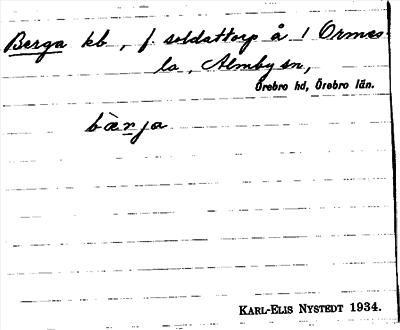 Berga kb, f soldattorp å 1 Ormes
la, Almby sn,
Örebro hd, Örebro län.
bàrja
KARL-ELIS NYSTEDT 1934.